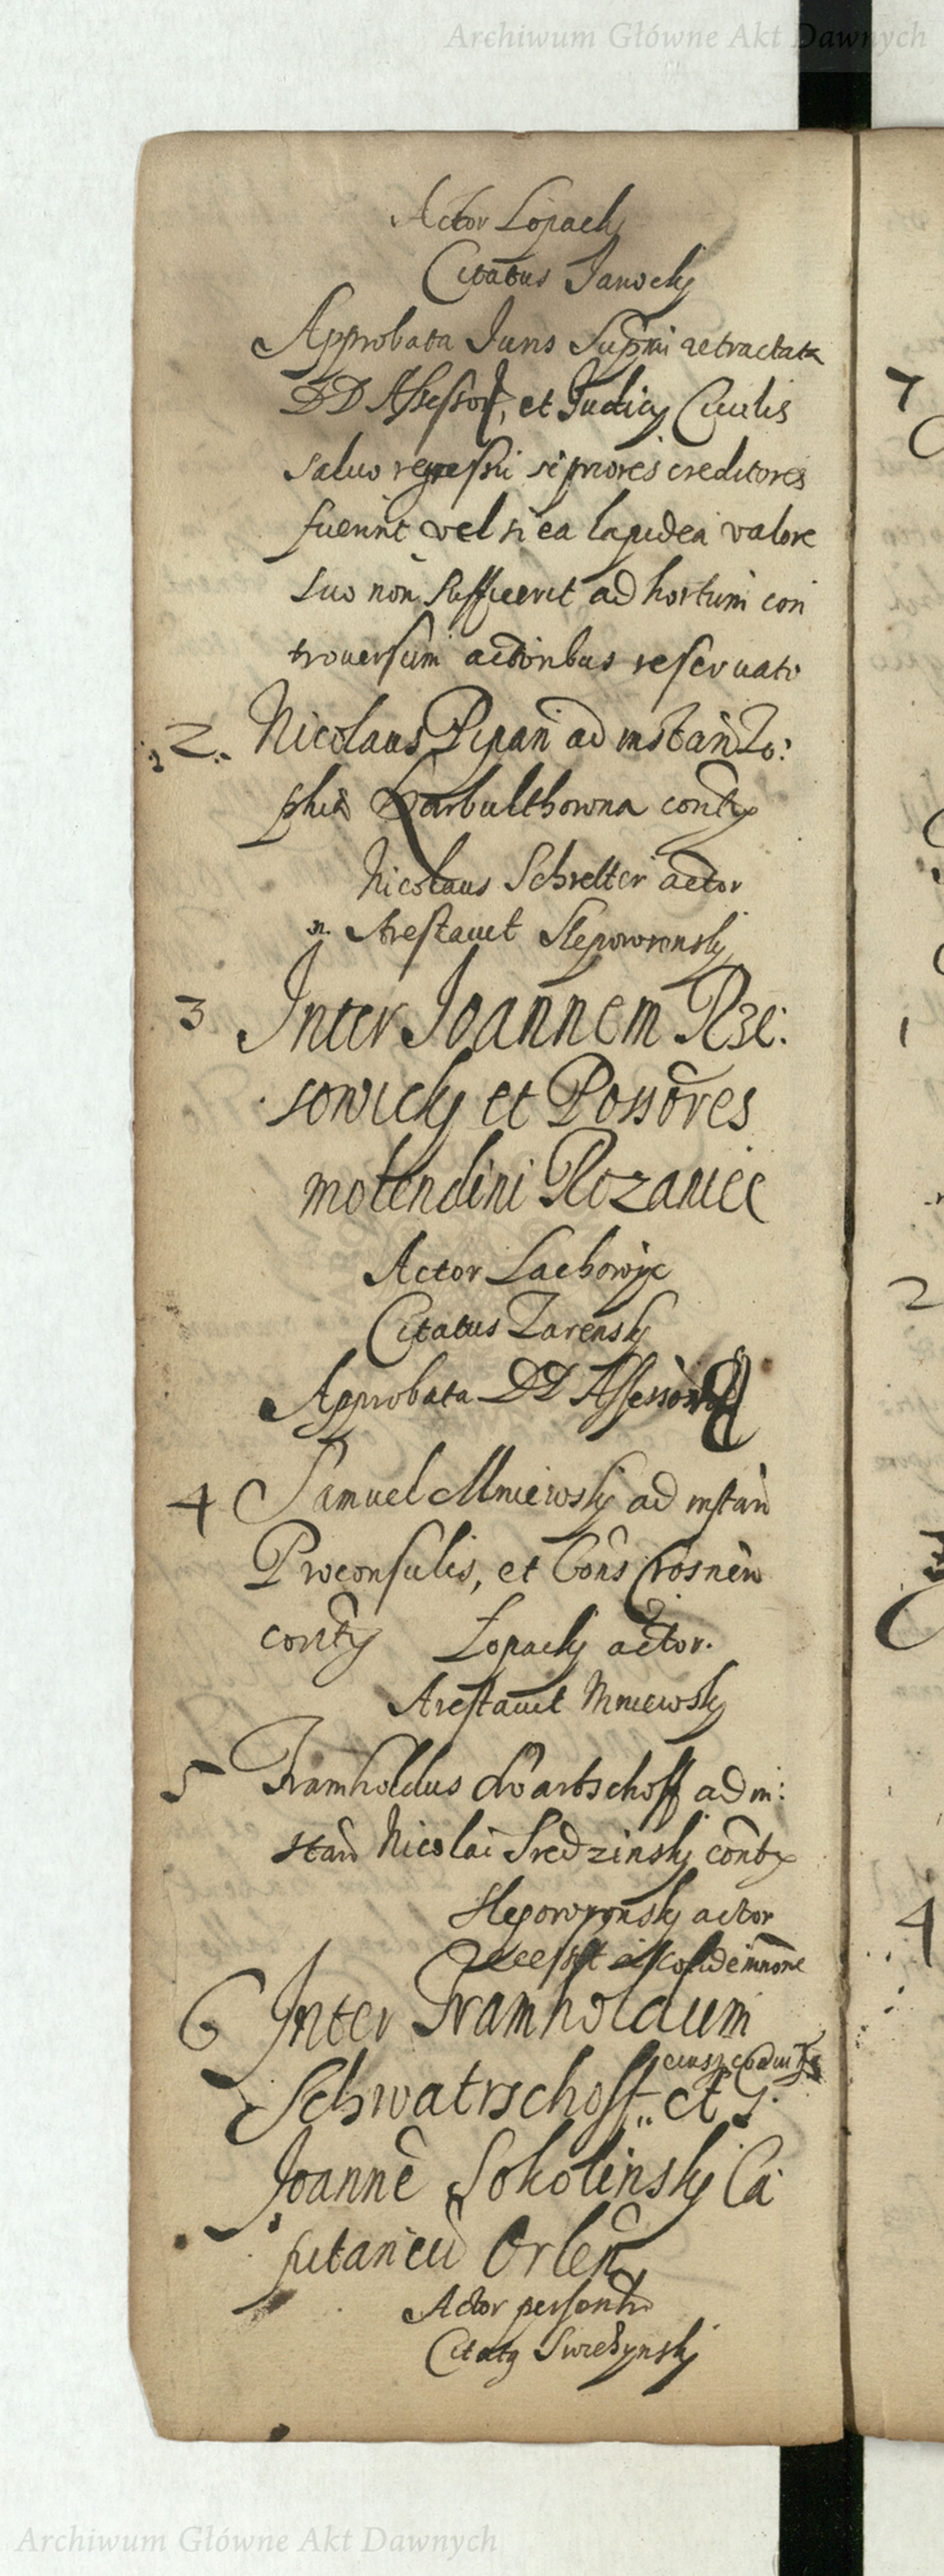 Archiwum Główne Akt Dawnych
Actor Lopacky
Citatus Janocky
Approbata Juris Supmi retractata
DD Assessor, et Judicy Civilis
saluo regressu si priores creditores
fuerint vel si ea lapidea valore
suo non suffecerit ad hortum con
trouersum actoribus reseruato
2. Nicolaus Pipan ad instan Zo:
phia Barbulthowna contx
Nicolaus Schrelter actor
Arestauit Slepowronsky
3 Inter Joannem Rze:
sowicky et Possores
molendini Rozaniec
Actor Lachowic
Citatus Zarensky
Approbata DD Assessor
4 Samuel Mniewsky ad instan
Proconsulis, et Cons Crosnen
contx Lopacky actor.
Arestauit Mniewsky
5 Framholdus Swartschoff ad in:
stan Nicolai Sredzinsky contx
Slepowronsky actor
Recessit a condemnne
6 Inter Framholdum
Schwatrschoff et G.
Joanne Sokolinsky Ca
pitaneu Orlen
Actor personlr
Citatq
Archiwum Główne Akt Dawnych